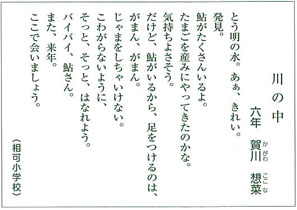 川の中
六年 賀川 想菜
かがわ ここな
とう明の水。あぁ、きれい。
発見。
鮎がたくさんいるよ。
たまごを産みにやってきたのかな。
気持ちよさそう。
だけど、鮎がいるから、足をつけるのは、
がまん、がまん。
じゃまをしちゃいけない。
こわがらないように、
そっと、そっと、はなれよう。
バイバイ、鮎さん。
また、来年。
ここで会いましょう。
(相可小学校)